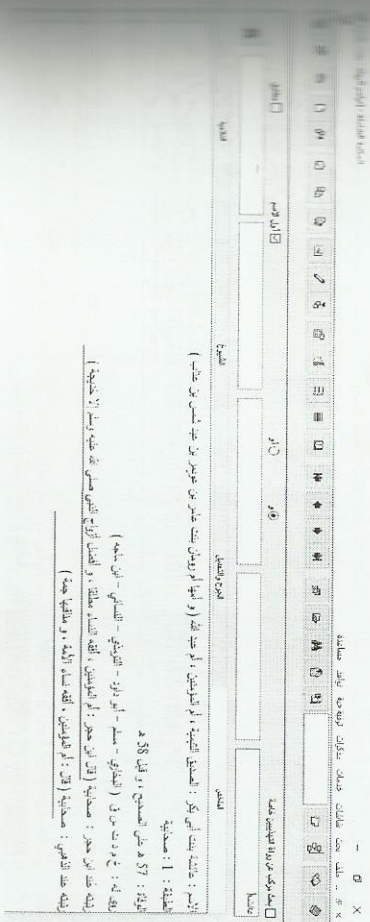 ملف بحث شاشات خدمات مذكرات ترقيم حية نوافذ مساعدة
بحث مركب عن رواة التهذيبين خاصة
و
أو
أول الاسم
مطابق
عائشة
الملخص
الجرح والتعديل
الشيوخ
التلاميذ
الإسم : عائشة بنت أبى بكر : الصديق التيمية ، أم المؤمنين ، أم عبد الله ( و أمها أم رومان بنت عامر بن عويمر بن عبد شمس بن عتاب )
الطبقة : 1 : صحابية
الوفاة : 57 هـ على الصحيح ، و قيل 58 هـ
روى له : خ م د ت س ق ( البخاري - مسلم - أبو داود - الترمذي - النسائي - ابن ماجه )
رتبته عند ابن حجر : صحابية ( قال ابن حجر : أم المؤمنين ، أفقه النساء مطلقا ، و أفضل أزواج النبى صلى الله عليه وسلم إلا خديجة )
رتبته عند الذهبي : صحابية ( قال : أم المؤمنين ، أفقه نساء الأمة ، و مناقبها جمة )